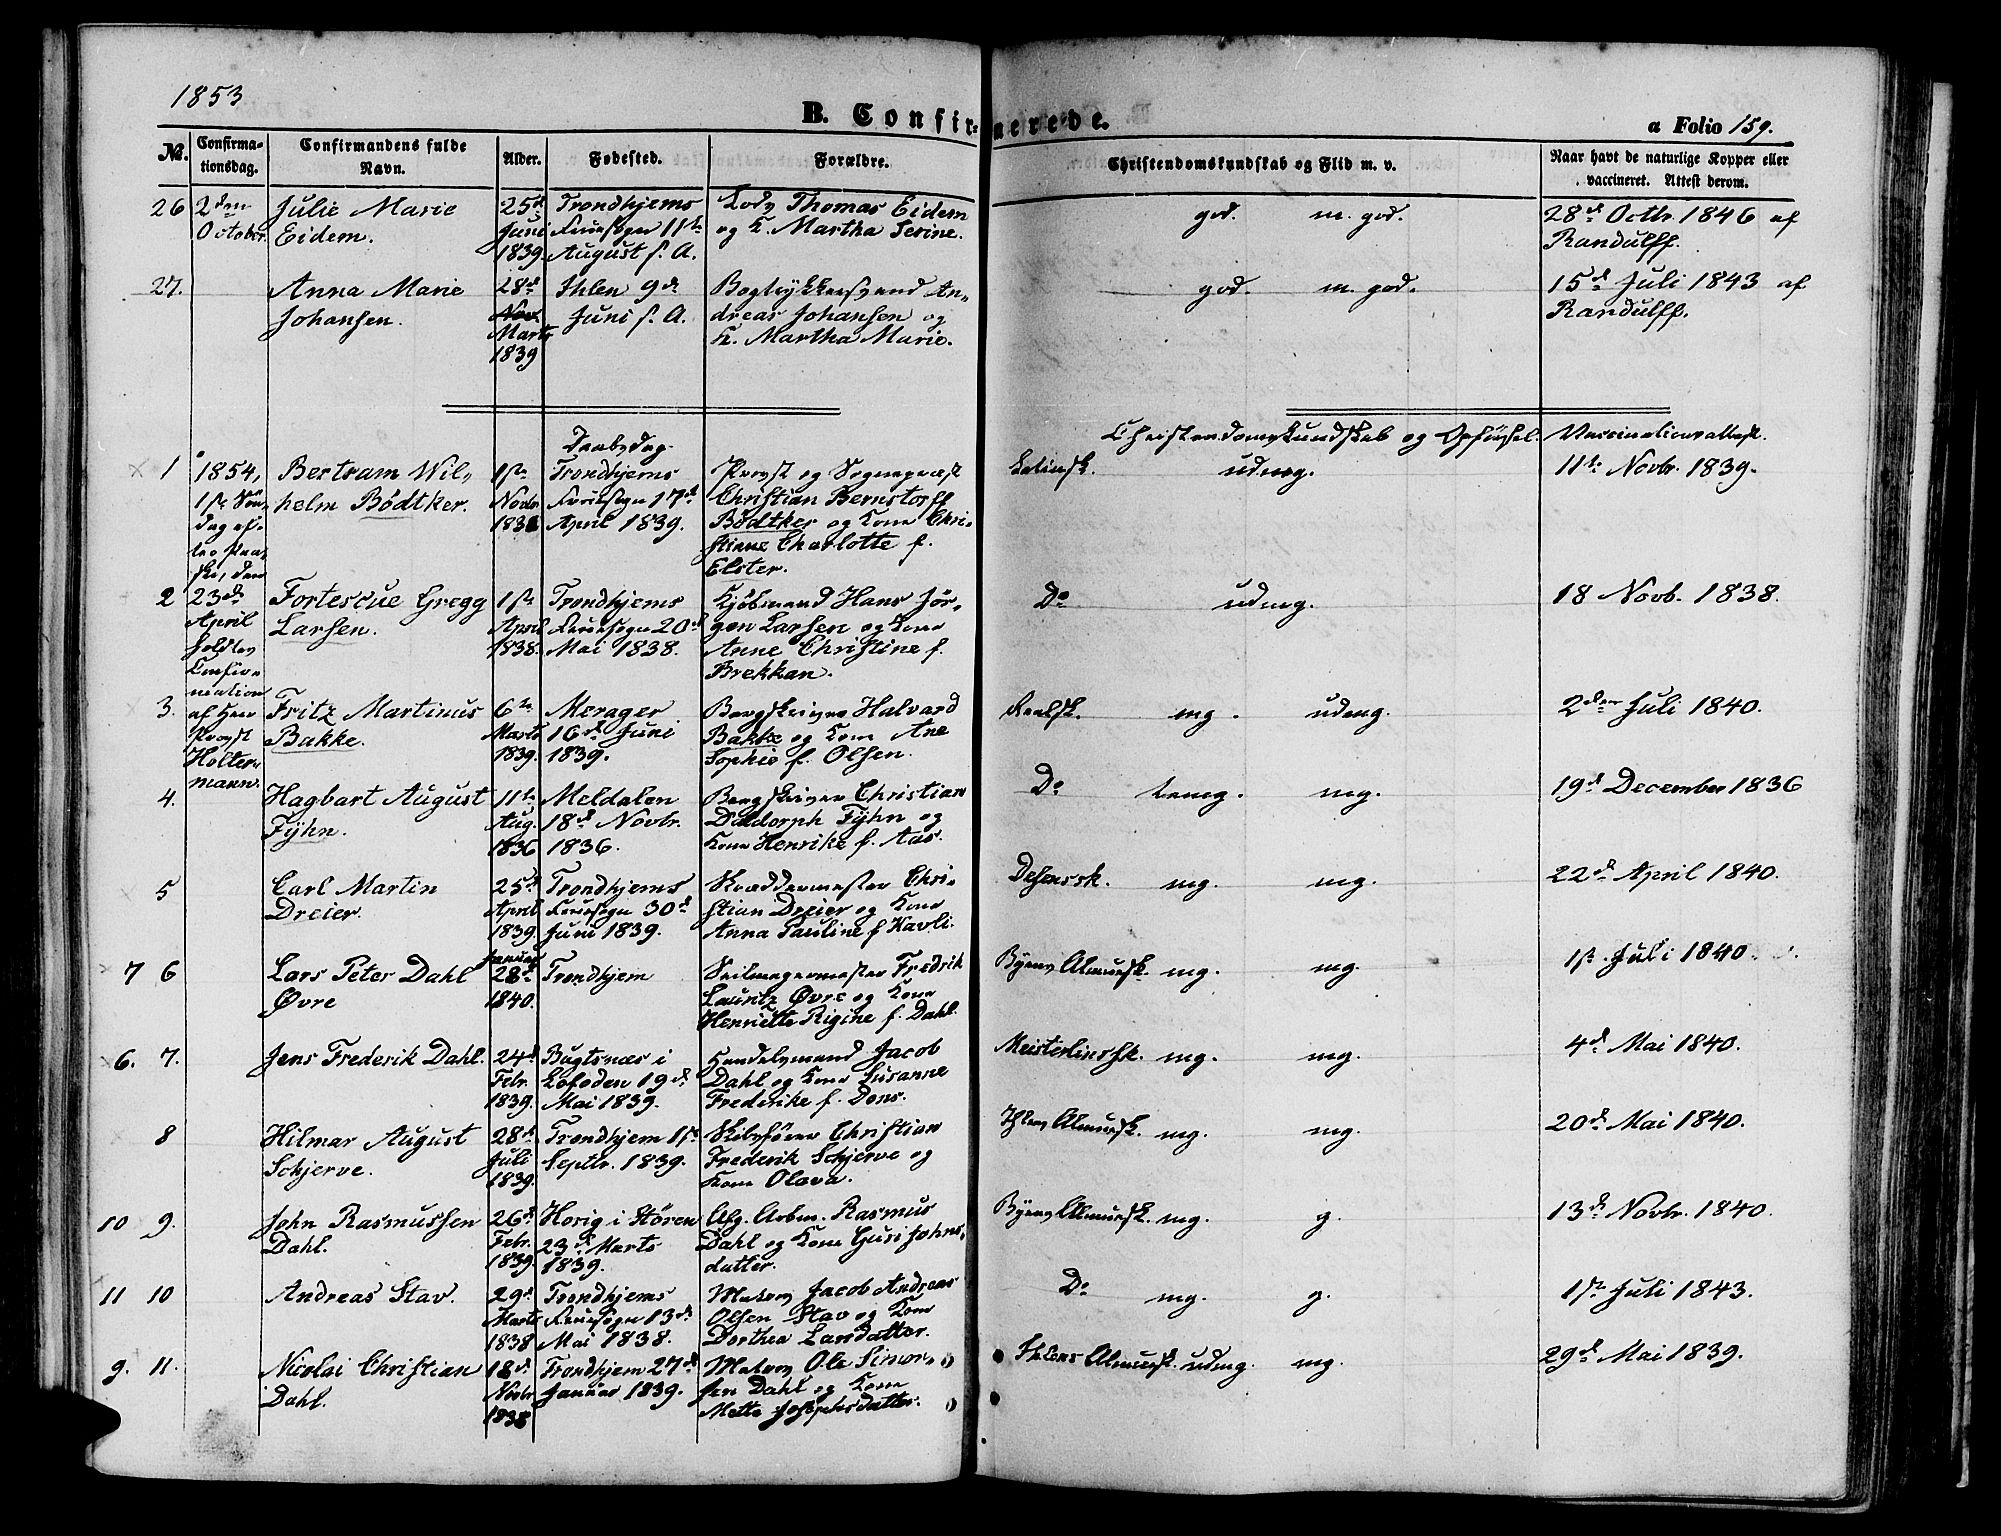 1853
B. Confirmerede.
a Folio 159.
No. Confirmationsdag. Confirmandens fulde Navn. Alder. Fødested. Forældre. Christendomskundskab og Flid m. v. Naar havt de naturlige Kopper eller vaccineret. Attest derom.
26 2den Julie Marie 25d Trondhjems Thomas Eidem god. m. god. 28d Octbr. 1846 af
October Eidem. Juni Fruesogn 11te og K. Martha Serine. Randulff.
1839. August s. A.
27. Anna Marie 28d Ihlen 9d Bogtrykkersvend An- god. m. god. 15d Juli 1843 af
Johansen. Nov. Juni s. A. dreas Johansen og Randulff.
Marts K. Martha Marie.
1839
Daabsdag Christendomskundskab og Opførsel. Vaccinationsattest.
1 1854, Bertram Wil- 1ste Trondhjems Provst og Sognepræst Latinsk. udmg. 11te Novbr. 1839.
1ste Søn- helm Bødtker. Novbr. Fruesogn 17d Christian Bernstorff
dag ef- 1838 April 1839. Bødtker og Kone Chri-
ter Paa- stiane Charlotte f.
ske, den Elster.
2 23de Fortescue Gregg 1ste Trondhjems Kjøbmand Hans Jør- Do udmg. 18 Novb. 1838.
April Larsen. April Fruesogn 20d gen Larsen og Kone
holdtes 1838. Mai 1838. Anne Christine f.
Confir- Brekkan.
mation
3. af Herr Fritz Martinus 6te Merager Bergskriver Halvard Realsk. mg. udmg. 2den Juli 1840.
Provst Bakke. Marts 16d Juni Bakke og Kone Ane
Holter- 1839. 1839. Sophie f. Olsen.
mann.
4. Hagbart August 11te Meldalen Bergskriver Christian Do temg. mg. 19d December 1836
Fÿhn. Aug. 18d Novbr. Fÿhn og
1836 1836. Kone Henrike f. Aas.
5 Carl Martin 25d Trondhjems Skræddermester Chri- mg. mg. 22d April 1840.
Dreier. April Fruesogn 30d stian Dreier og Kone
1839. Juni 1839. Anna Pauline f Havli.
7 6 Lars Peter Dahl Januar Trondhjem Seilmagermester Fredrik Byens Almuesk. mg. mg. 1st Juli 1840.
Øvre 28d Lauritz Øvre og Kone
1840. Henriette Rigine f. Dahl.
6. 7. Jens Frederik Dahl. 24d Bugtsnæs i Handelsmand Jacob mg. mg. 4d Mai 1840.
Febr. Lofoden 19d Dahl og Kone Susanne
1839. Mai 1839. Frederike f. Dons.
8 Hilmar August 28d Trondhjem 1st Skibsfører Christian Ihlens Almuesk. mg. mg. 20d Mai 1840.
Schjerve. Juli Septbr. 1839. Frederik Schjerve og
1839. Kone Olava.
10 9. John Rasmussen 26d Horig i Stören Afg. Arbm. Rasmus Byens Almuesk. mg. g. 13d Novbr. 1840.
Dahl. Febr. 23d Marts Dahl og Kone Guri Johns-
1839. 1839. datter.
11 10 Andreas Stav. 29d Trondhjems Matros Jacob Andreas Do mg. g. 1ste Juli 1843.
Marts Fruesogn 13d Olsen Stav og Kone
1838 Mai 1838. Dorthea Larsdatter.
9. 11. Nicolai Christian 18d Trondhjem 27d Matros Ole Simon- Ihlens Almuesk. udmg. mg. 29d Mai 1839.
Dahl. Novbr. Januar 1839. sen Dahl og Kone
1838 Mette Josephsdatter.